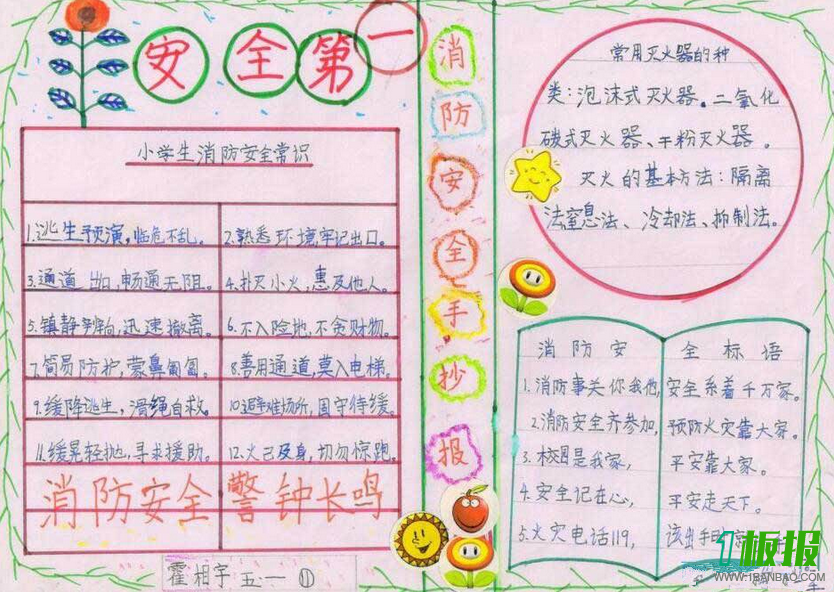 安全第一
小学生消防安全常识
1.逃生预演,临危不乱。
2.熟悉环境,牢记出口。
3.通道出口,畅通无阻。
4.扑灭小火,惠及他人。
5.镇静辨向,迅速撤离。
6.不入险地,不贪财物。
7.简员防护,蒙鼻匍匐。
8.善用通道,莫入电梯。
9.缓降逃生,滑绳自救。
10.避难场所,固守待缓。
11.缓晃轻抛,寻求援助。
12.火己及身,切勿惊跑。
消防安全 警钟长鸣
霍相宇 五.一 ⑪
消防安全手抄报
常用灭火器的种
类:泡沫式灭火器。二氧化
碳式灭火器、干粉灭火器。
灭火的基本方法:隔离
法窒息法、冷却法、抑制法。
消防安全标语
1.消防事关你我他,安全系着千万家。
2.消防安全齐参加,预防火灾靠大家。
3.校园是我家,平安靠大家。
4.安全记在心,平安走天下。
5.火灾电话119,该出手时
1板报
WWW.1BANBAO.COM